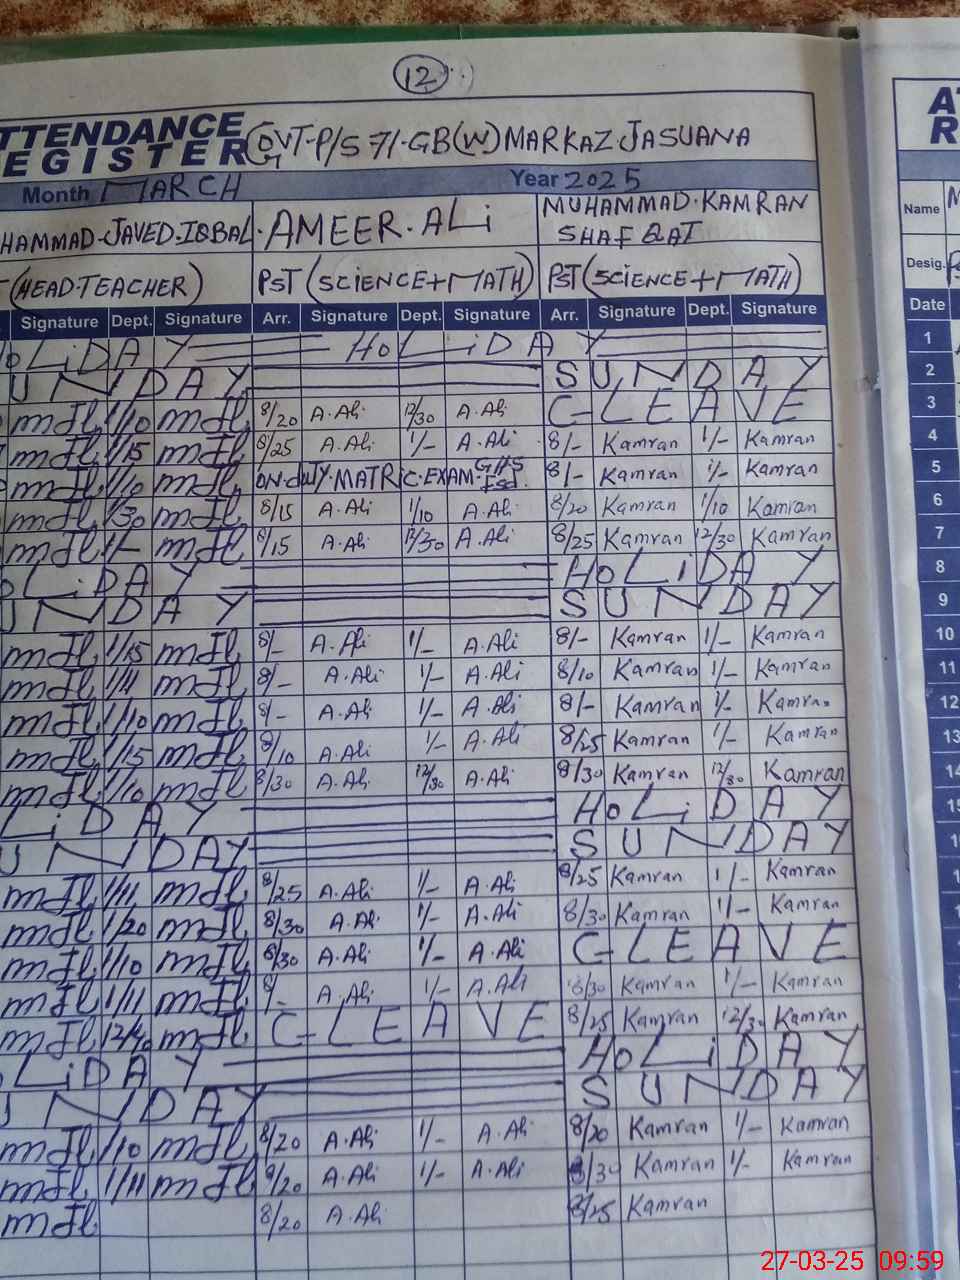 12
ATTENDANCE REGISTER GOVT-P/S 71-GB(W) MARKAZ JASUANA
Month MARCH Year 2025
HAMMAD-JAVED-IQBAL. AMEER.ALi MUHAMMAD.KAMRAN SHAFQAT Name
(HEAD-TEACHER) PST (SCiENCE+MATH) PST (SCiENCE+MATH) Desig.
Signature Dept. Signature Arr. Signature Dept. Signature Arr. Signature Dept. Signature Date
HoLiDAY HoLiDAY 1
UNDAY SUNDAY 2
mJI 1/10 mJI 8/20 A.Ali 12/30 A.Ali C-LEAVE 3
mJI 1/15 mJI 8/25 A.Ali 1/- A.Ali 8/- Kamran 1/- Kamran 4
mJI 1/10 mJI ON.duTY.MATRiC.EXAM. GHS 8/- Kamran 1/- Kamran 5
mJI 1/30 mJI 8/15 A.Ali 1/10 A.Ali 8/20 Kamran 1/10 Kamran 6
mJI 1/- mJI 8/15 A.Ali 12/30 A.Ali 8/25 Kamran 12/30 Kamran 7
oLiDAY HoLiDAY 8
UNDAY SUNDAY 9
mJI 1/15 mJI 8/- A.Ali 1/- A.Ali 8/- Kamran 1/- Kamran 10
mJI 1/11 mJI 8/- A.Ali 1/- A.Ali 8/10 Kamran 1/- Kamran 11
mJI 1/10 mJI 8/- A.Ali 1/- A.Ali 8/- Kamran 1/- Kamran 12
mJI 1/15 mJI 8/10 A.Ali 1/- A.Ali 8/25 Kamran 1/- Kamran 13
mJI 1/10 mJI 8/30 A.Ali 12/30 A.Ali 8/30 Kamran 12/30 Kamran 14
LiDAY HoLiDAY 15
UNDAY SUNDAY
mJI 1/11 mJI 8/25 A.Ali 1/- A.Ali 8/25 Kamran 1/- Kamran
mJI 1/20 mJI 8/30 A.Ali 1/- A.Ali 8/30 Kamran 1/- Kamran
mJI 1/10 mJI 8/30 A.Ali 1/- A.Ali C-LEAVE
mJI 1/11 mJI 8/- A.Ali 1/- A.Ali 8/30 Kamran 1/- Kamran
mJI mJI C-LEAVE 8/25 Kamran 12/30 Kamran
LiDAY HoLiDAY
UNDAY SUNDAY
mJI 1/10 mJI 8/20 A.Ali 1/- A.Ali 8/20 Kamran 1/- Kamran
mJI 1/11 mJI 8/20 A.Ali 1/- A.Ali 8/30 Kamran 1/- Kamran
mJI 8/20 A.Ali 8/25 Kamran
27-03-25 09:59